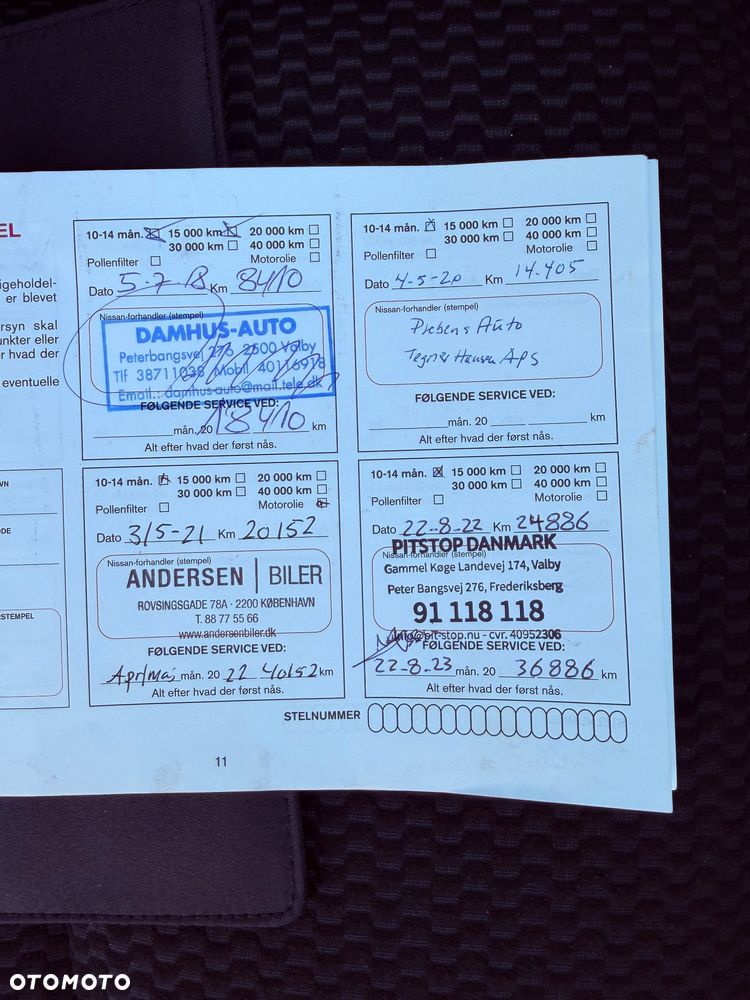 EL
igeholdel-
er blevet
rsyn skal
unkter eller
r hvad der
eventuelle
VN
ODE
STEMPEL
10-14 mån. 15 000 km 20 000 km
30 000 km 40 000 km
Pollenfilter Motorolie
Dato 5-7-18 Km 8410
Nissan-forhandler (stempel)
DAMHUS-AUTO
Peterbangsvej 276 2500 Valby
Tlf 38711038 Mobil 40116918
Email.: damhus-auto@mail.tele.dk
FØLGENDE SERVICE VED:
mån. 20 18410 km
Alt efter hvad der først nås.
10-14 mån. 15 000 km 20 000 km
30 000 km 40 000 km
Pollenfilter Motorolie
Dato 4-5-20 Km 14.405
Nissan-forhandler (stempel)
Prebens Auto
Tegner Hansen ApS
FØLGENDE SERVICE VED:
mån. 20 km
Alt efter hvad der først nås.
10-14 mån. 15 000 km 20 000 km
30 000 km 40 000 km
Pollenfilter Motorolie
Dato 3/5-21 Km 20152
Nissan-forhandler (stempel)
ANDERSEN | BILER
ROVSINGSGADE 78A · 2200 KØBENHAVN
T. 88 77 55 66
www.andersenbiler.dk
FØLGENDE SERVICE VED:
Apr/Maj mån. 20 22 40152 km
Alt efter hvad der først nås.
10-14 mån. 15 000 km 20 000 km
30 000 km 40 000 km
Pollenfilter Motorolie
Dato 22-8-22 Km 24886
PITSTOP DANMARK
Nissan-forhandler (stempel)
Gammel Køge Landevej 174, Valby
Peter Bangsvej 276, Frederiksberg
91 118 118
info@pit-stop.nu - cvr. 40952306
FØLGENDE SERVICE VED:
22-8-23 mån. 20 36886 km
Alt efter hvad der først nås.
STELNUMMER
11
OTOMOTO